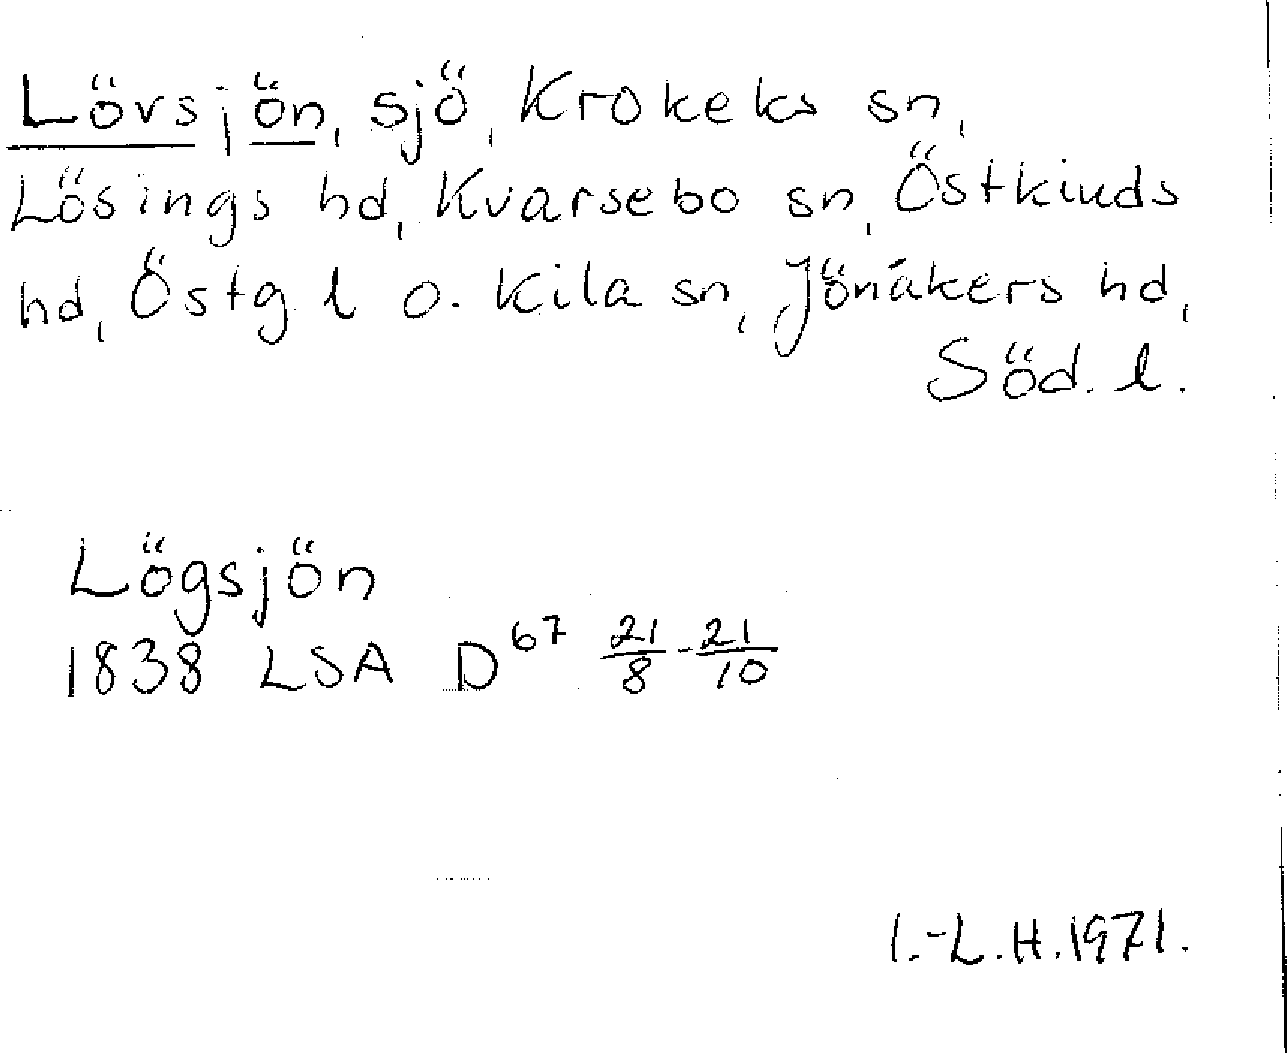 Lövsjön, sjö, Krokeks sn,
Lösings hd, Kvarsebo sn, Östkinds
hd, Östg. l o. Kila sn, Jönåkers hd,
Söd. l.
Lögsjön
1838 LSA D⁶⁷ 21/8-21/10
I.-L.H. 1971.